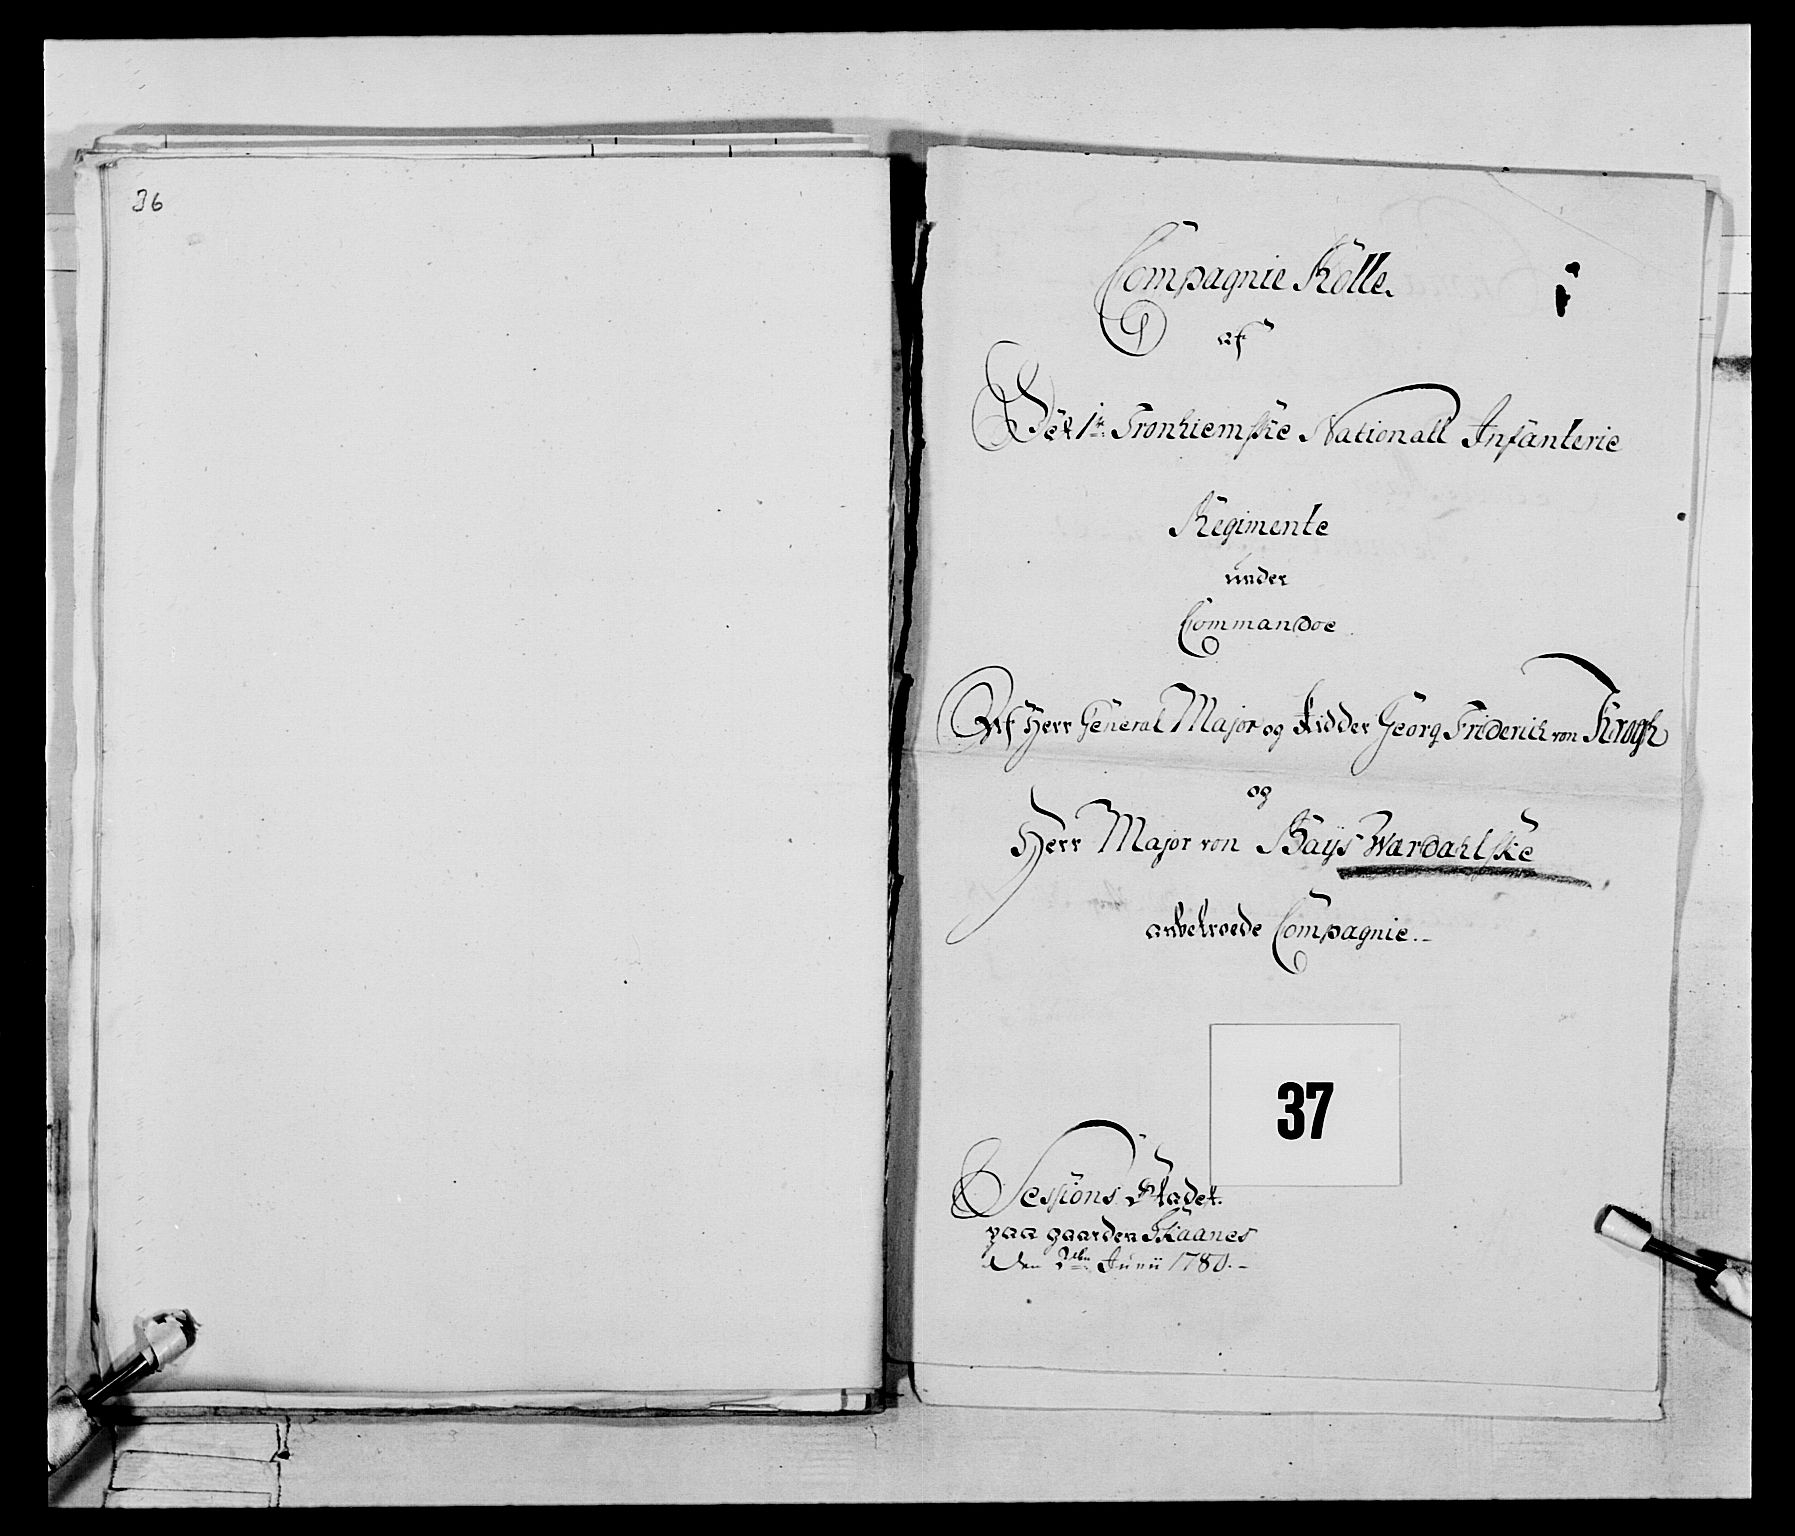 36
Compagnie Rolle.
af
Det 1te Tronhiemske Nationall Infanterie
Regimente
under
Commandoe
Af Herr General Major og Ridder Georg Friderich von Krogh
og
Herr Major von Bays Wardahlske
anbetroede Compagnie.
37
Sessions Stadet.
paa gaarden Skaanes
Den Junii 1780.